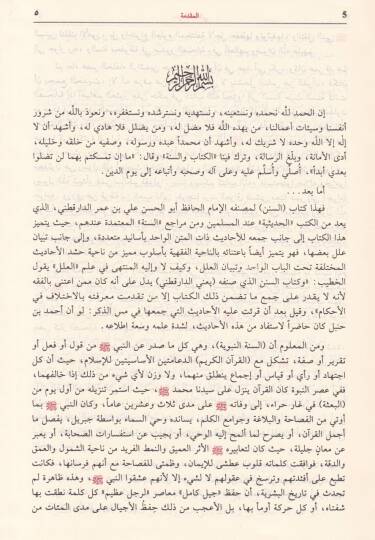 5
المقدمة
٥
بسم الله الرحمن الرحيم
إن الحمد لله نحمده ونستعينه، ونستهديه ونسترشده ونستغفره، ونعوذ بالله من شرور
أنفسنا وسيئات أعمالنا، من يهده الله فلا مضل له، ومن يضلل فلا هادي له، وأشهد أن لا
إله إلا الله وحده لا شريك له، وأشهد أن محمداً عبده ورسوله، وصفيه من خلقه وخليله،
أدى الأمانة، وبلّغ الرسالة، وترك فينا «الكتاب والسنة» وقال: «ما إن تمسكتم بهما لن تضلوا
بعدي أبداً»، أُصلّي وأُسلّم عليه وعلى آله وصحبه وأتباعه إلى يوم الدين.
أما بعد...
فهذا كتاب (السنن) لمصنفه الإمام الحافظ أبو الحسن علي بن عمر الدارقطني، الذي
يعد من الكتب «الحديثية» عند المسلمين ومن مراجع «السنة» المعتمدة عندهم، حيث يتميز
هذا الكتاب إلى جانب جمعه للأحاديث ذات المتن الواحد بأسانيد متعددة، وإلى جانب تبيان
علل بعضها، فهو يتميز أيضاً باعتنائه بالناحية الفقهية بأسلوب مميز من ناحية حشد الأحاديث
المختلفة تحت الباب الواحد وتبيان العلل، وكيف لا وإليه المنتهى في علم «العلل» يقول
الخطيب: «وكتاب السنن الذي صنفه (يعني الدارقطني) يدل على أنه كان ممن اعتنى بالفقه
لأنه لا يقدر على جمع ما تضمن ذلك الكتاب إلا من تقدمت معرفته بالاختلاف في
الأحكام»، وقيل بعد أن قرئت عليه الأحاديث التي جمعها في مس الذكر: لو أن أحمد بن
حنبل كان حاضراً لاستفاد من هذه الأحاديث، لشدة علمه وسعة إطلاعه.
ومن المعلوم أن (السنة النبوية)، وهي كل ما صدر عن النبي ﷺ من قول أو فعل أو
تقرير أو صفة، تشكل مع (القرآن الكريم) الدعامتين الأساسيتين للإسلام، حيث أن كل
اجتهاد أو رأي أو قياس أو إجماع ينطلق منهما، ولا وزن لأي شيء من ذلك إذا خالفهما،
ففي عصر النبوة كان القرآن ينزل على سيدنا محمد ﷺ، حيث استمر تنزيله من أول يوم من
(البعثة) في غار حراء، إلى وفاته ﷺ على مدى ثلاث وعشرين عاماً، وكان النبي ﷺ بما
أوتي من الفصاحة والبلاغة وجوامع الكلم، يسانده وحيُ السماء بواسطة جبريل، يفصل ما
أجمل القرآن، أو يصرح لما ألمح إليه الوحي، أو يجيب عن استفسارات الصحابة، أو يعبر
عن معانٍ جليلة، حيث كان لتعابيره ﷺ الأثر العميق والنمط الفريد من ناحية الشمول والعمق
والدقة، فوافقت كلماته قلوب عطشى للإيمان، وظمئى للفصاحة مع أنهم فرسانها، فكانت
تطبع على أفئدتهم وترسخ في عقولهم لا لشيء إلا لأنهم عشقوا النبي ﷺ، وهذه ظاهرة لم
تحدث في تاريخ البشرية، أن حفظ «جيل كامل» معاصر «لرجل عظيم» كل كلمة نطقت بها
شفتاه، أو كل حركة أومأ بها، بل الأعجب من ذلك حفظ الأجيال على مدى المئات من